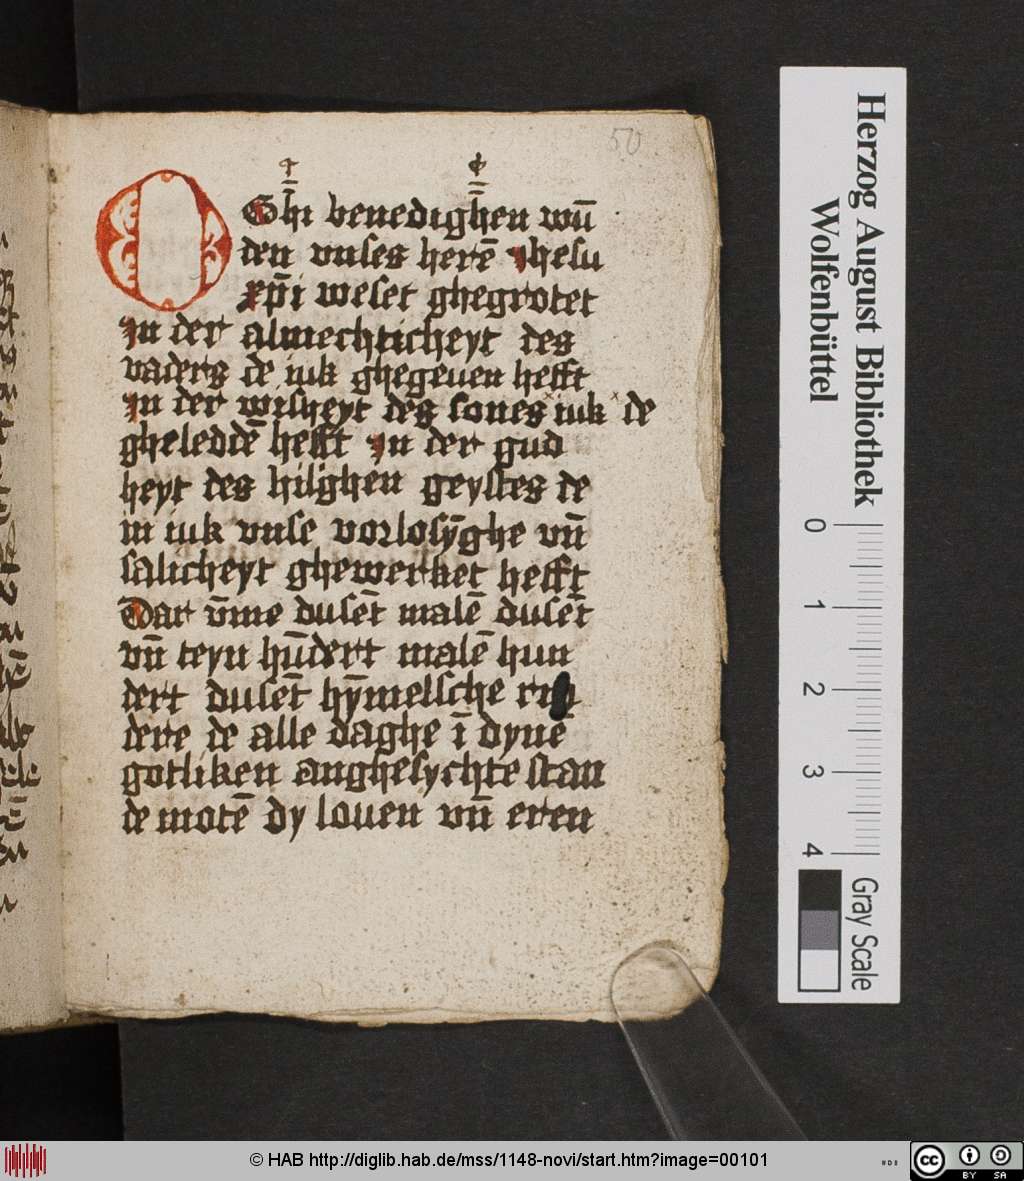 50
O Ghi benedighen wū
den vnses herē ihesu
xp̄i weset ghegrotet
in der almechticheyt des
vaders de iuk ghegeuen hefft
in der wisheyt des sones iuk de
gheleddē hefft in der gud
heyt des hilghen geystes de
in iuk vnse vorlosȳghe vn̄
salicheyt ghewerket hefft
Dar v̄me dusēt malē dusēt
vn̄ teyn hūdert malē hun
dert dusēt hȳmelsche
dere de alle daghe ī dynē
gotliken anghesychte stan
de motē dy louen vn̄ eren
Herzog August Bibliothek
Wolfenbüttel
0 1 2 3 4
Gray Scale
© HAB http://diglib.hab.de/mss/1148-novi/start.htm?image=00101
cc BY SA